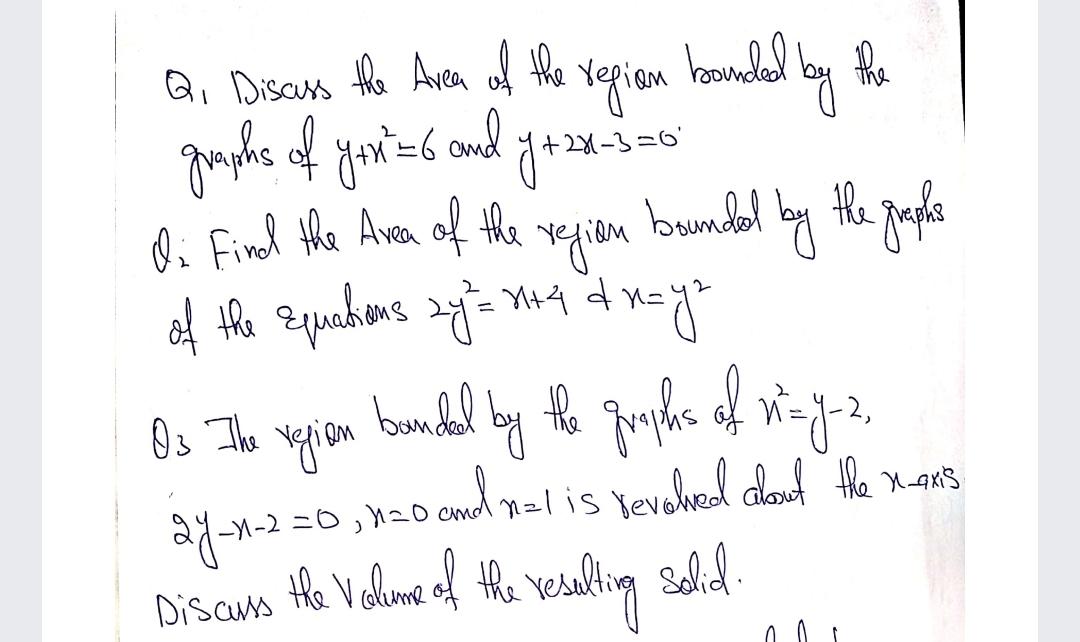 Q1 Discuss the Area of the region bounded by the
graphs of y+x²=6 and y+2x-3=0
Q2 Find the Area of the region bounded by the graphs
of the Equations 2y²=x+4 & x=y²
Q3 The region bounded by the graphs of x²=y-2,
2y-x-2=0, x=0 and x=1 is revolved about the x-axis
Discuss the Volume of the resulting Solid.